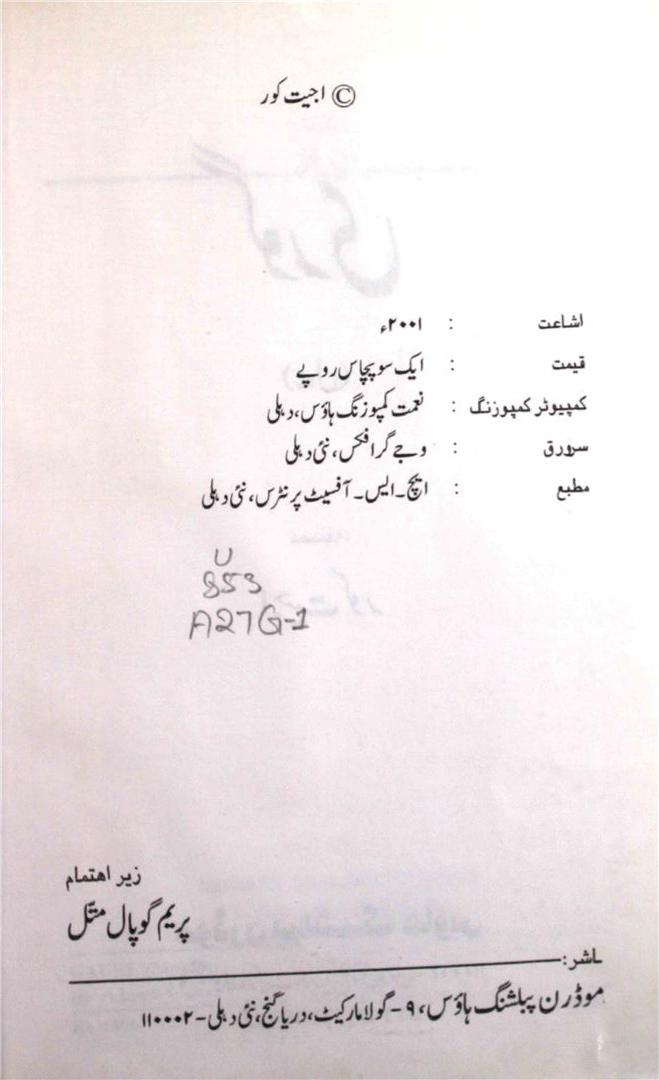 © اجیت کور
اشاعت : ۲۰۰۱ء
قیمت : ایک سو پچاس روپے
کمپیوٹر کمپوزنگ : نعمت کمپوزنگ ہاؤس، دہلی
سرورق : وجے گرافکس، نئی دہلی
مطبع : ایچ۔ایس۔ آفسیٹ پرنٹرس، نئی دہلی
U
853
A27G-1
زیر اهتمام
پریم گوپال متّل
ناشر:
موڈرن پبلشنگ ہاؤس، ۹- گولا مارکیٹ، دریا گنج، نئی دہلی-۱۱۰۰۰۲